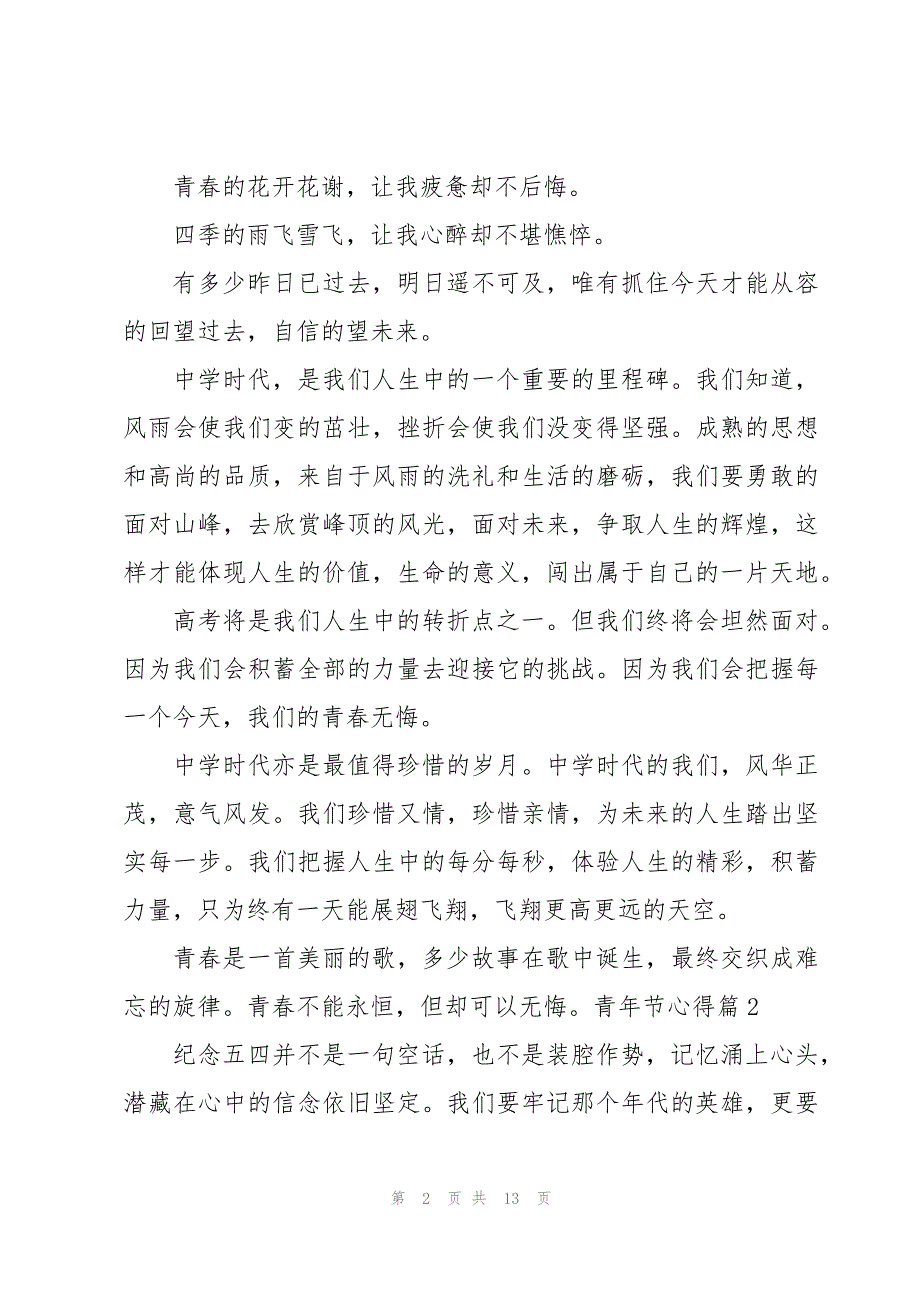 青春的花开花谢，让我疲惫却不后悔。
四季的雨飞雪飞，让我心醉却不堪憔悴。
有多少昨日已过去，明日遥不可及，唯有抓住今天才能从容
的回望过去，自信的望未来。
中学时代，是我们人生中的一个重要的里程碑。我们知道，
风雨会使我们变的茁壮，挫折会使我们没变得坚强。成熟的思想
和高尚的品质，来自于风雨的洗礼和生活的磨砺，我们要勇敢的
面对山峰，去欣赏峰顶的风光，面对未来，争取人生的辉煌，这
样才能体现人生的价值，生命的意义，闯出属于自己的一片天地。
高考将是我们人生中的转折点之一。但我们终将会坦然面对。
因为我们会积蓄全部的力量去迎接它的挑战。因为我们会把握每
一个今天，我们的青春无悔。
中学时代亦是最值得珍惜的岁月。中学时代的我们，风华正
茂，意气风发。我们珍惜又情，珍惜亲情，为未来的人生踏出坚
实每一步。我们把握人生中的每分每秒，体验人生的精彩，积蓄
力量，只为终有一天能展翅飞翔，飞翔更高更远的天空。
青春是一首美丽的歌，多少故事在歌中诞生，最终交织成难
忘的旋律。青春不能永恒，但却可以无悔。青年节心得篇2
纪念五四并不是一句空话，也不是装腔作势，记忆涌上心头，
潜藏在心中的信念依旧坚定。我们要牢记那个年代的英雄，更要
第 2 页 共 13 页